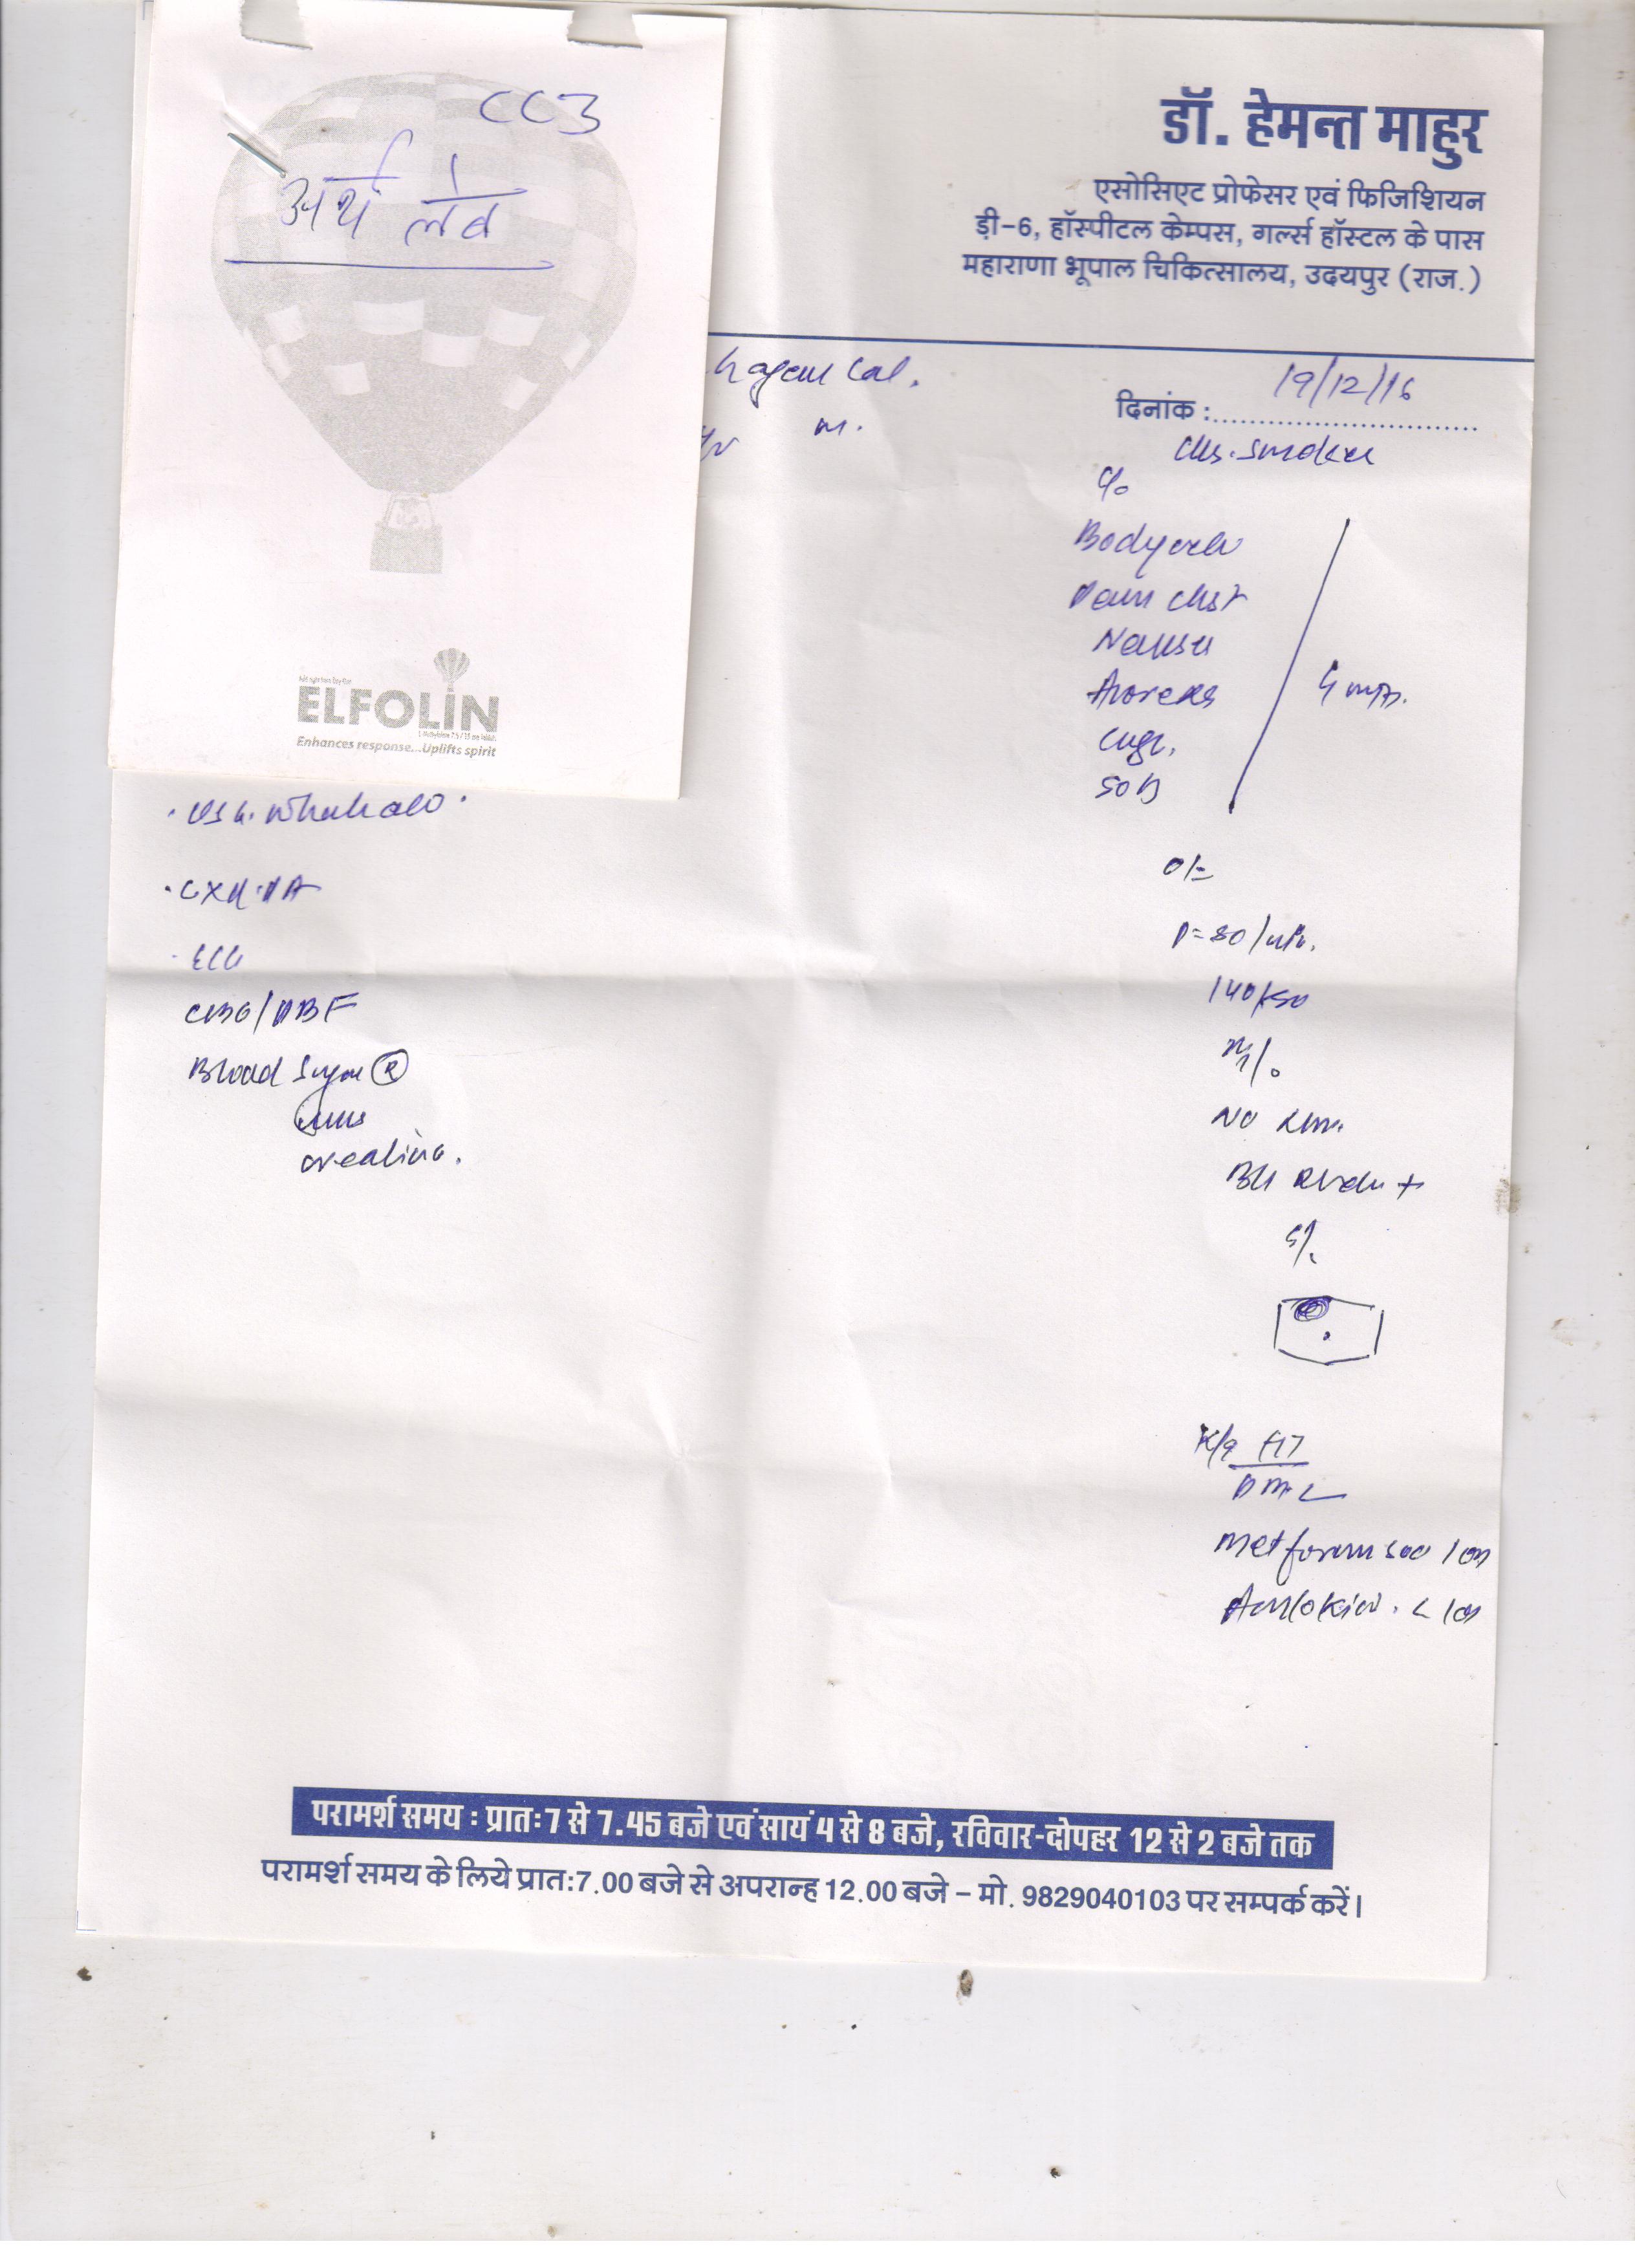 CC3
अर्थ लेब
ELFOLIN
Enhances response...Uplifts spirit
डॉ. हेमन्त माहुर
एसोसिएट प्रोफेसर एवं फिजिशियन
डी-6, हॉस्पीटल केम्पस, गर्ल्स हॉस्टल के पास
महाराणा भूपाल चिकित्सालय, उदयपुर (राज.)
Lal.
M.
दिनांक : 19/12/16
Chr. smoker
C/o
Bodyache
Pain chest
Nausea
Anorexia
Cough.
SOB
O/E
P=80/min.
140/80
No
BM
S/.
K/c HT
DM
Metformin 500 1 OD
Amlokind.
USG. Whole abd.
CXR.PA
ECG
CBC/PBF
Blood Sugar (R)
creatinine.
परामर्श समय : प्रातः 7 से 7.45 बजे एवं सायं 4 से 8 बजे, रविवार-दोपहर 12 से 2 बजे तक
परामर्श समय के लिये प्रातः 7.00 बजे से अपरान्ह 12.00 बजे – मो. 9829040103 पर सम्पर्क करें।